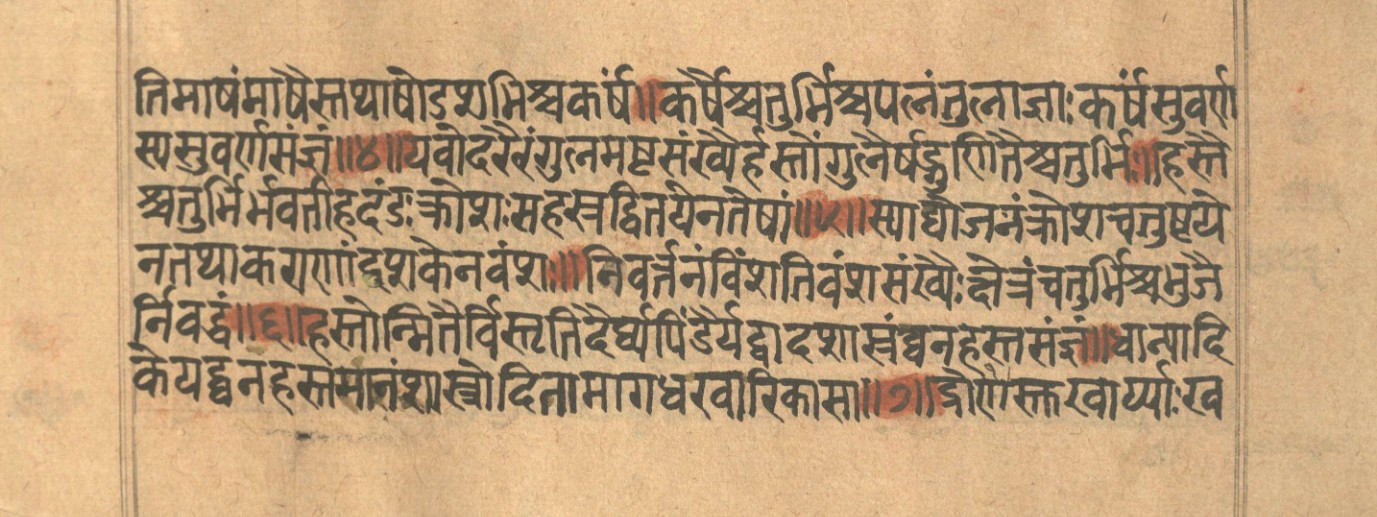 तिमाषंमाषैस्तथाषोडशभिश्चकर्षं॥कर्षैश्चतुर्भिश्चपलंतुलाज्ञाःकर्षंसुवर्ण
स्यसुवर्णसंज्ञं॥४॥यवोदरैरंगुलमष्टसंख्यैर्हस्तोंगुलैर्षड्गुणितैश्चतुर्भिः॥हस्तै
श्चतुर्भिर्भवतीहदंडःक्रोशःसहस्रद्वितयेनतेषां॥५॥स्याद्योजनंक्रोशचतुष्टये
नतथाकराणांदशकेनवंशः॥निवर्त्तनंविंशतिवंशसंख्यैःक्षेत्रंचतुर्भिश्चभुजै
र्निवद्धं॥६॥हस्तोन्मितैर्विस्तृतिदैर्घ्यपिंडैर्यद्वादशास्रंघनहस्तसंज्ञं॥धान्यादि
केयद्घनहस्तमानंशास्त्रोदितामागधखारिकासा॥७॥द्रोणस्तखार्य्याःख